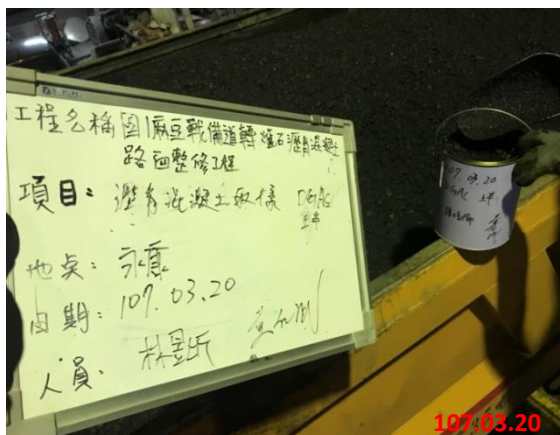 工程名稱:國1麻豆戰備道轉爐石瀝青混凝土
路面整修工程
項目:瀝青混凝土取樣 DGAC
上午
地點:永康
日期:107.03.20
人員:林昱圻
107.03.20
DGAC 上午
107.03.20